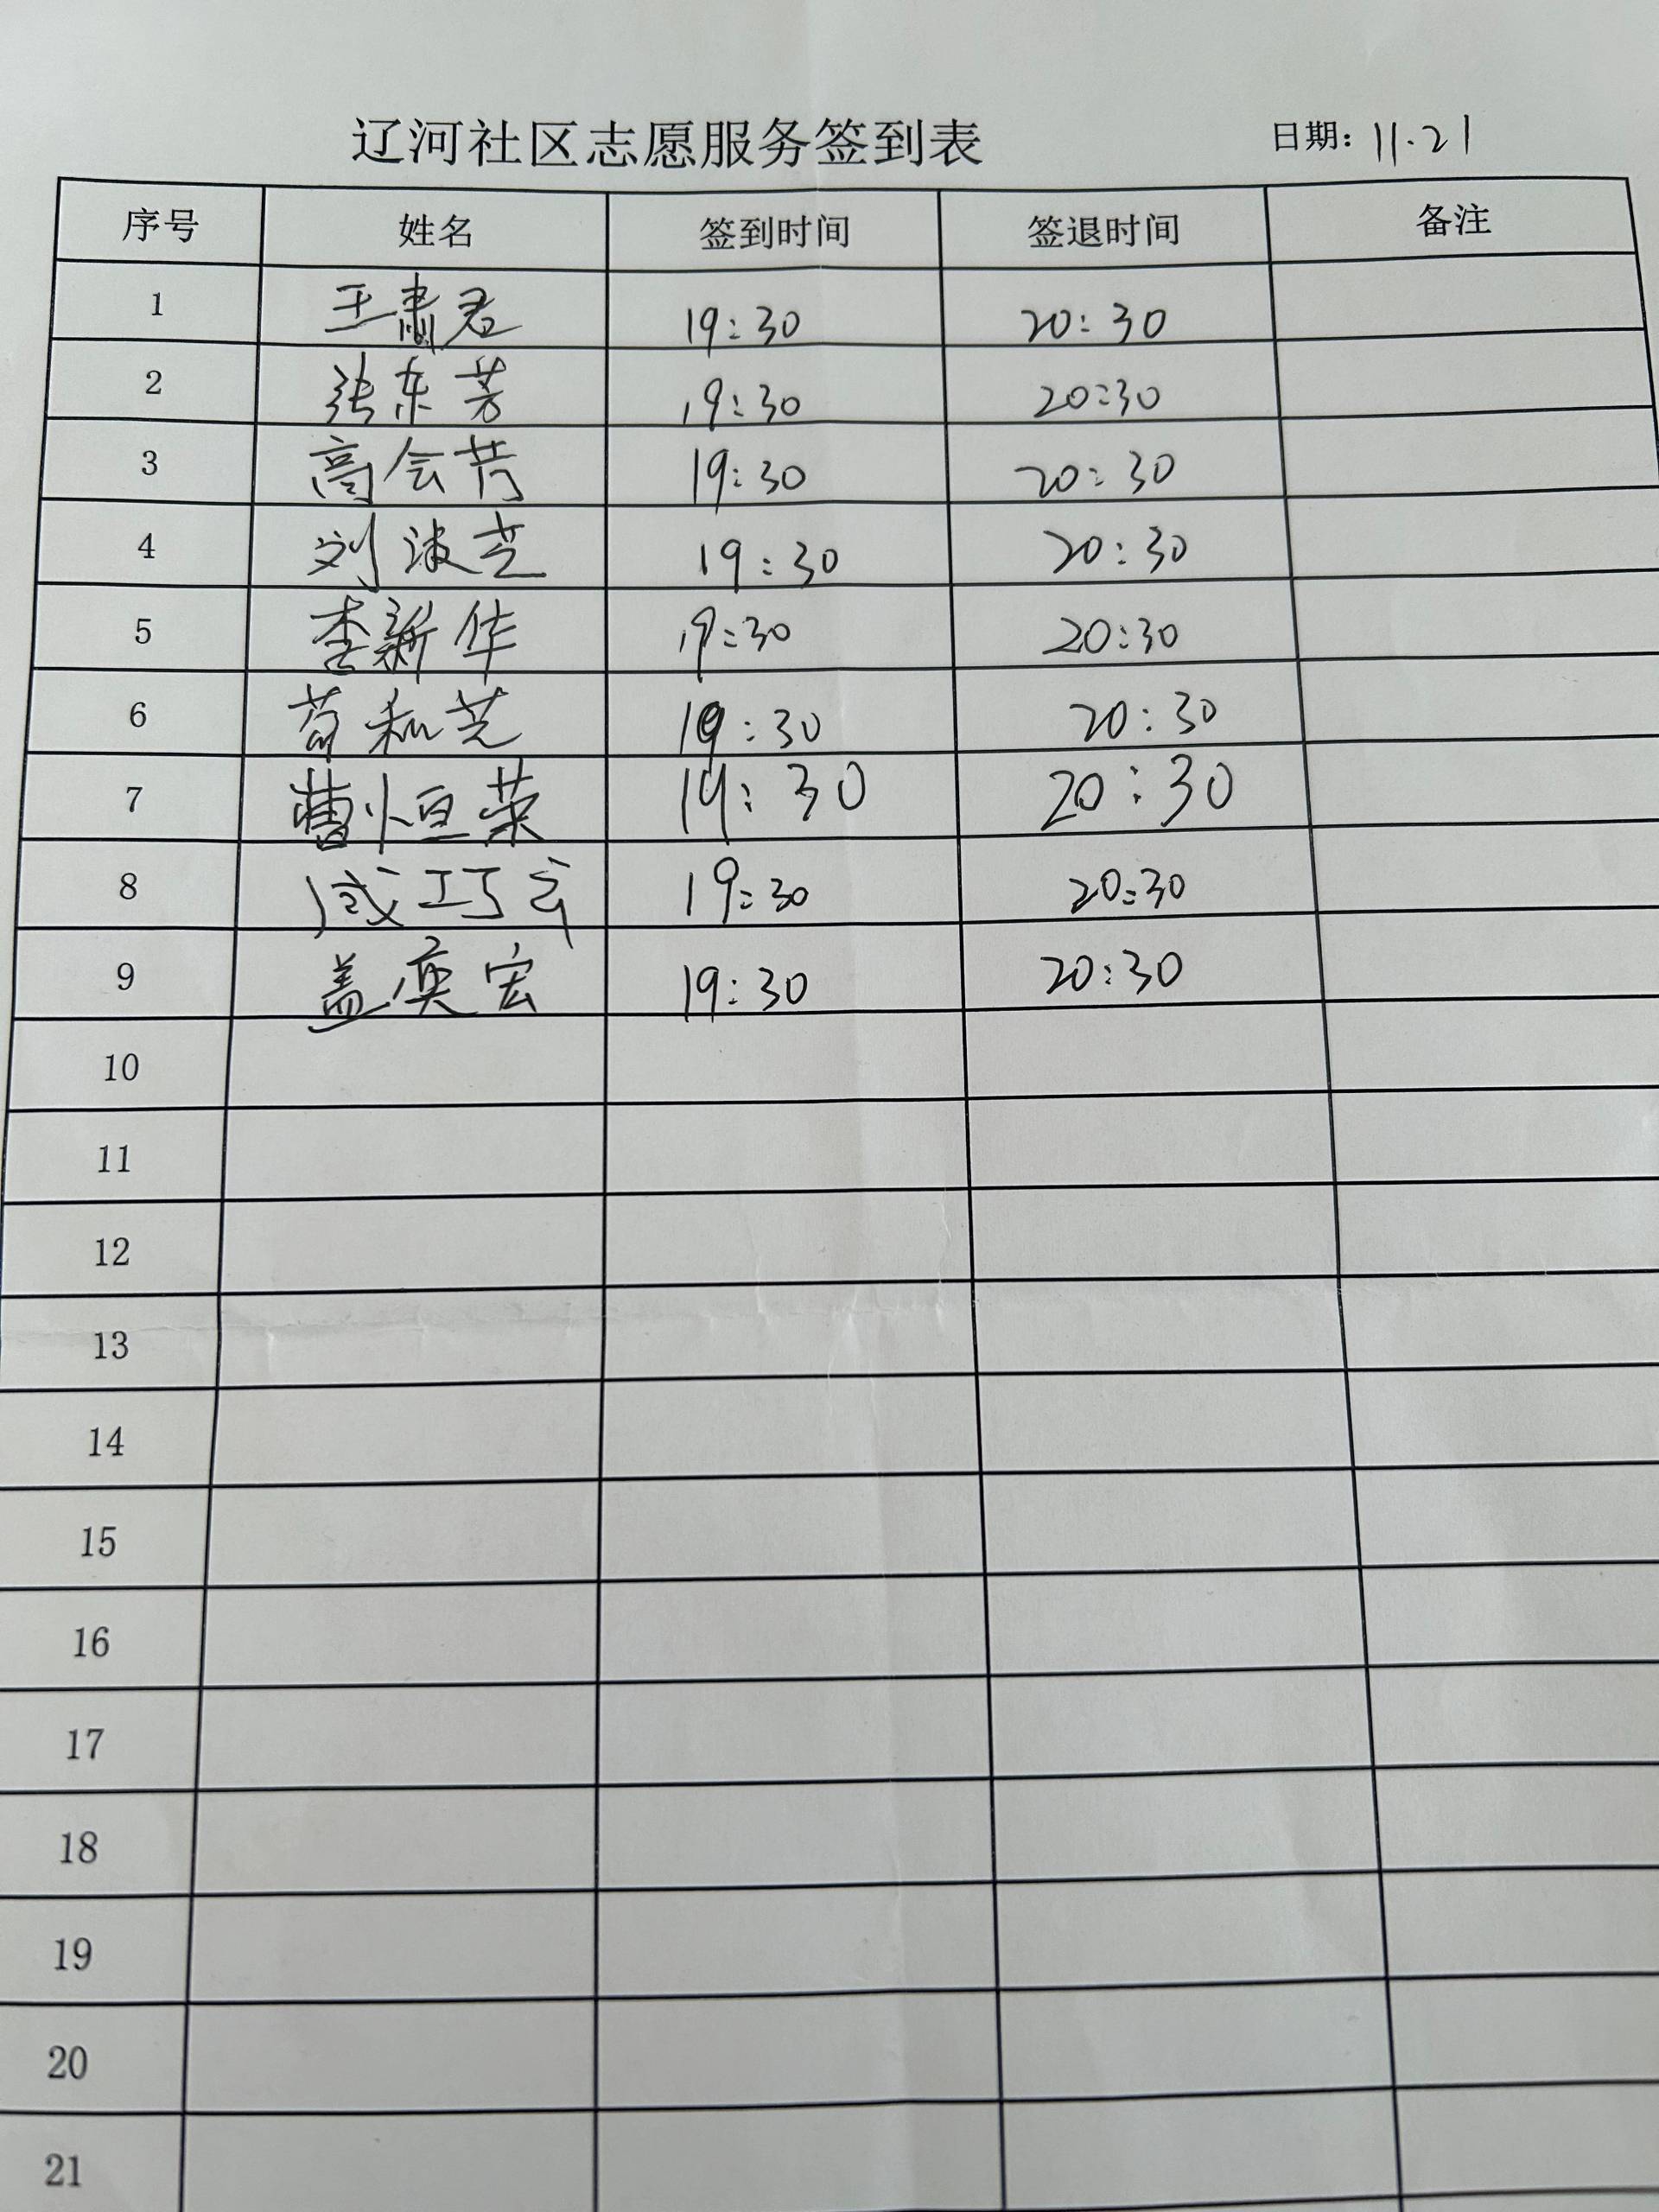 辽河社区志愿服务签到表 日期：11.21
序号 姓名 签到时间 签退时间 备注
1 王肃君 19:30 20:30
2 张东芳 19:30 20:30
3 高会芳 19:30 20:30
4 刘淑芝 19:30 20:30
5 李新华 19:30 20:30
6 苟和芝 19:30 20:30
7 曹恒荣 19:30 20:30
8 咸巧云 19:30 20:30
9 盖奂宏 19:30 20:30
10
11
12
13
14
15
16
17
18
19
20
21